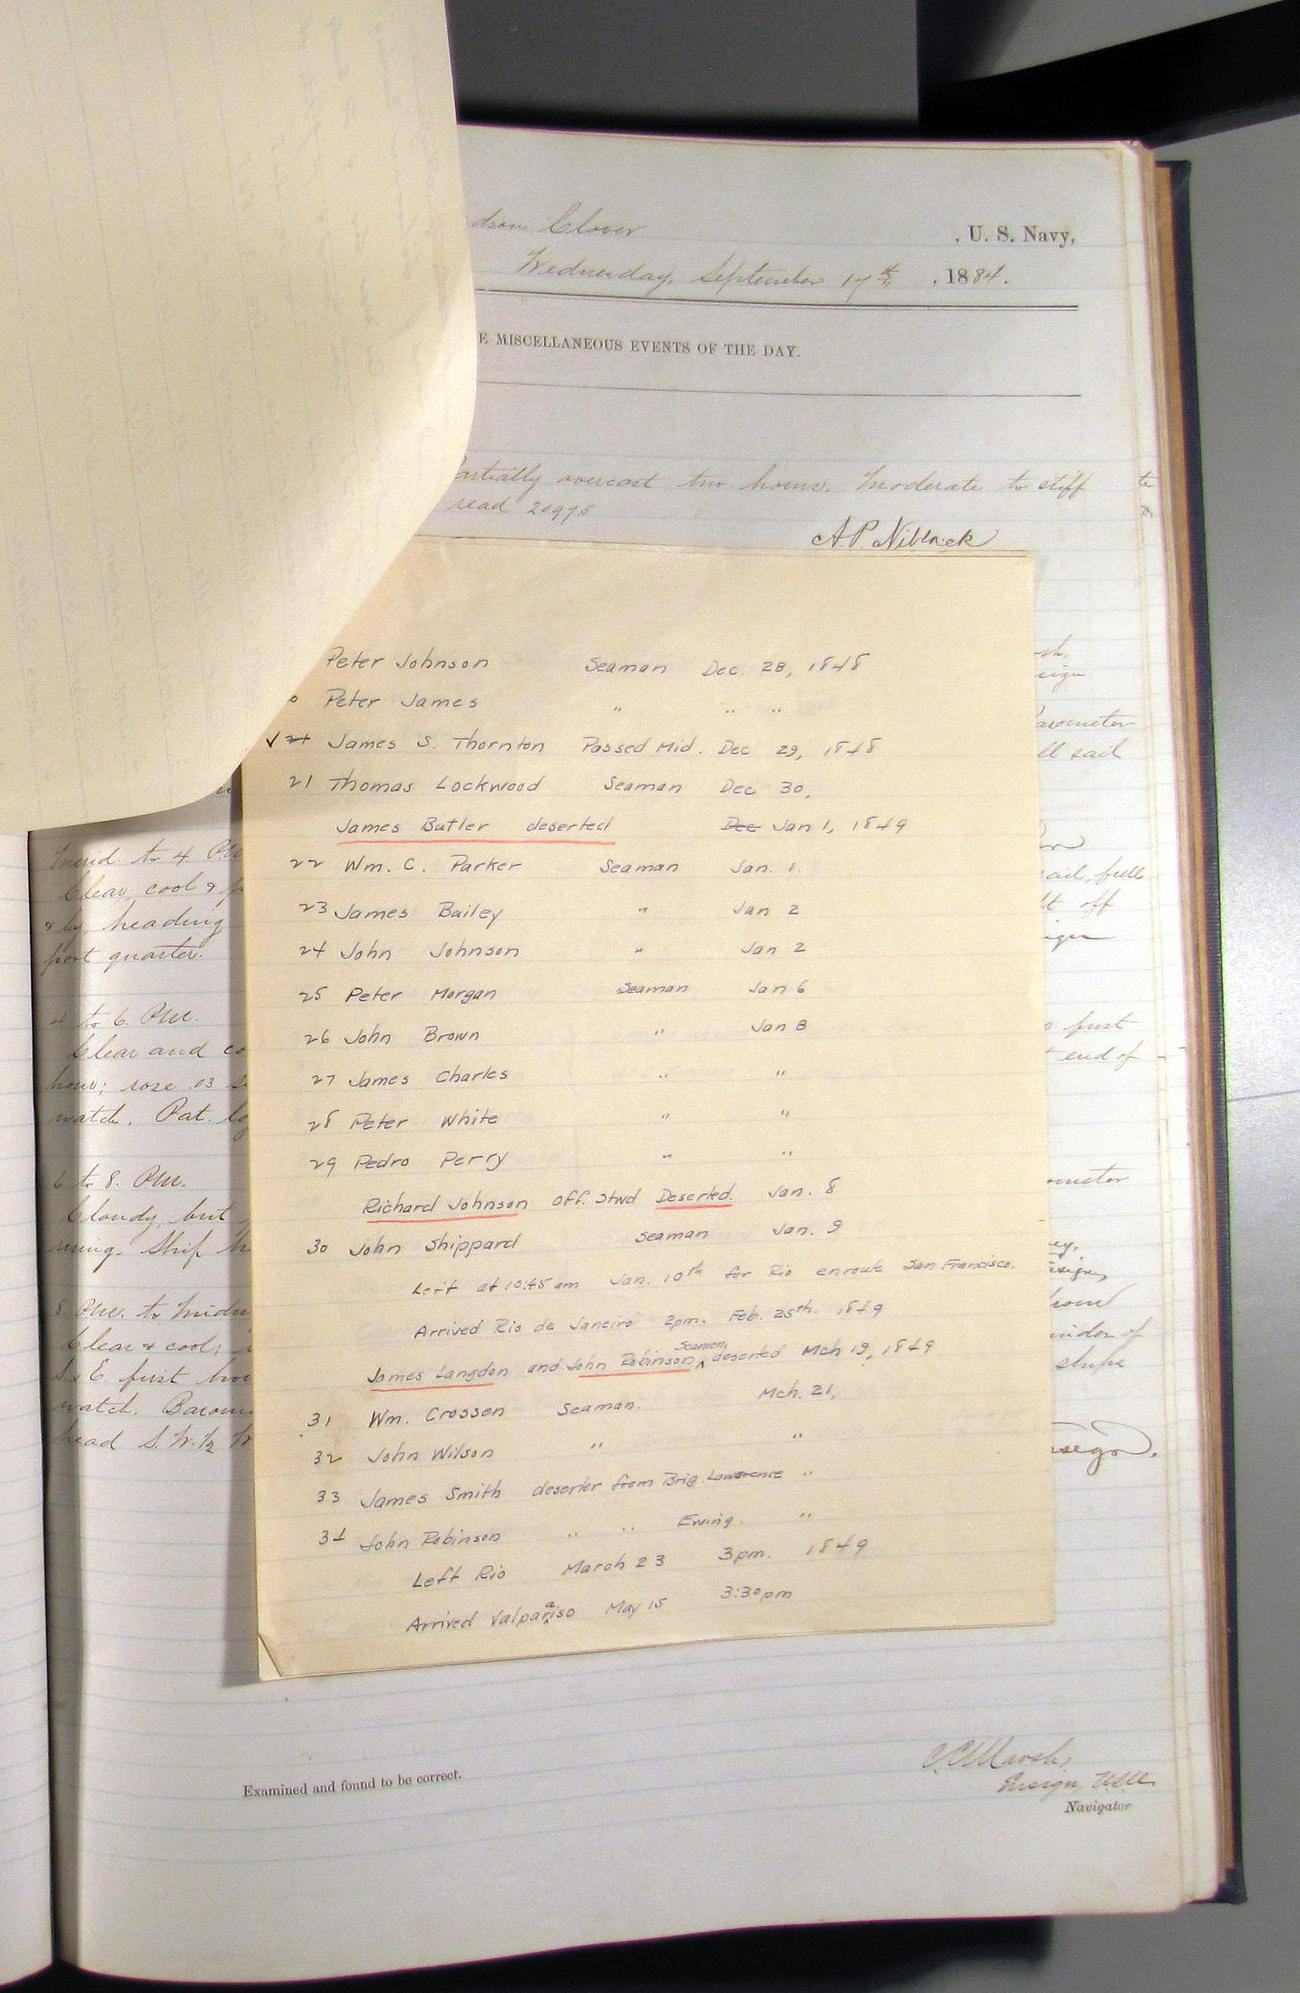 dson Clover , U. S. Navy,
Wednesday, September 17th , 1884.
E MISCELLANEOUS EVENTS OF THE DAY.
artially overcast two hours. Moderate to stiff
read 20975
A. P. Niblack
Peter Johnson Seaman Dec. 28, 1848
0 Peter James " " "
✓ 21 James S. Thornton Passed Mid. Dec 29, 1848
21 Thomas Lockwood Seaman Dec 30,
James Butler deserted Dec Jan 1, 1849
22 Wm. C. Parker Seaman Jan. 1.
23 James Bailey " Jan 2
24 John Johnson " Jan 2
25 Peter Morgan Seaman Jan 6
26 John Brown " Jan 8
27 James Charles " "
28 Peter White " "
29 Pedro Perry " "
Richard Johnson Off. Stwd Deserted. Jan. 8
30 John Shippard Seaman Jan. 9
Left at 10:45 am Jan. 10th for Rio enroute San Francisco.
Arrived Rio de Janeiro 2pm. Feb. 25th 1849
James Langdon and John Robinson, Seamen, deserted Mch 19, 1849
31 Wm. Crossen Seaman. Mch. 21,
32 John Wilson " "
33 James Smith deserter from Brig. Lawrence "
34 John Robinson " " Ewing. "
Left Rio March 23 3pm. 1849
Arrived Valparaiso May 15 3:30pm
Merid. to 4 P.M.
Clear, cool &
& by, heading
port quarter.
4 to 6. P.M.
Clear and co
hour; rose .03
watch. Pat. lo
6 to 8. P.M.
Cloudy, but
ming. Ship
8 P.M. to Midn
Clear & cool;
S. & E. first hou
watch. Barom
head S. W. 1/2 W
arometer
ll sail
ail, full
lt off
o first
t end of
ometer
ey,
nsign,
ander of
ships
C. C. Marsh,
Ensign, U.S.N.
Examined and found to be correct.
Navigator